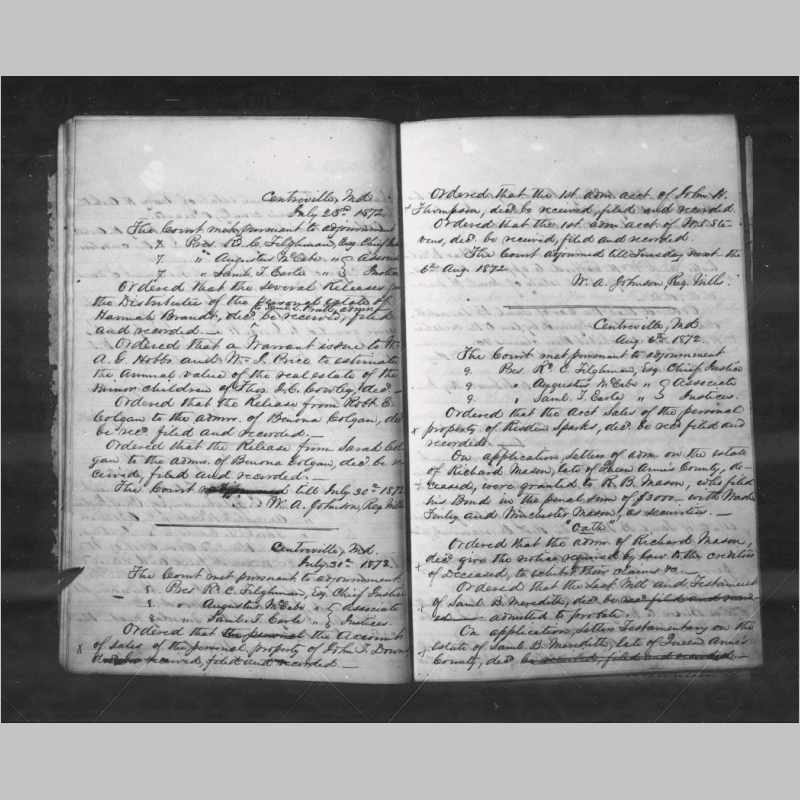 Centreville, Md.
July 23rd. 1872.
The Court met pursuant to adjournment
7. Pres. R. C. Tilghman, Esq. Chief
7. " Augustus McCabe " Associ
7. " Saml. T. Earle " Justice
Ordered that the several Releases
the Distributees of the personal estate of
Hannah Brandt, decd. be received, filed
and recorded.—
Ordered that a Warrant issue to
A. G. Hobbs and Wm. J. Price to estimate
the annual value of the real estate of the
minor children of Thos. Cowley, decd.—
Ordered that the Release from Robt. E.
Colgan to the admr. of Benona Colgan, decd
be recd. filed and recorded.—
Ordered that the Release from Sarah Col
gan to the admr. of Benona Colgan, decd. be re
ceived, filed and recorded.—
The Court till July 30th 1872
W. A. Johnson, Reg. Wills
Centreville, Md.
July 30th. 1872.
The Court met pursuant to adjournment
Pres. R. C. Tilghman, Esq. Chief Justice
" Augustus McCabe " Associate
" Saml. T. Earle " Justices.
Ordered that the personal the Account
x of sales of the personal property of John T. Downs
received, filed and recorded.—
Ordered that the 1st. adm. acct. of John H.
Thompson, decd. be received, filed and recorded.
Ordered that the 1st. adm. acct. of Ste-
vens, decd. be received, filed and recorded.
The Court adjourned till Tuesday next the
6th Aug. 1872.
W. A. Johnson, Reg. Wills.
Centreville, Md.
Aug. 6th. 1872.
The Court met pursuant to adjournment
9. Pres. R. C. Tilghman, Esq. Chief Justice
9. " Augustus McCabe " Associate
9. " Saml. T. Earle " Justices.
Ordered that the Acct. Sales of the personal
x property of Sparks, decd. be recd. filed and
recorded.
On application, Letters of adm. on the estate
of Richard Mason, late of Queen Ann's County, de-
+ ceased, were granted to R. B. Mason, who filed
his Bond in the penal sum of $3000— with Wash
Finley and Winchester Mason, as securities.—
"Oath"
Ordered that the admr. of Richard Mason,
decd. give the notice required by law to the creditors
+ of deceased, to exhibit their claims &c.—
Ordered that the Last Will and Testament
+ of Saml. B. Meredith, decd. be recd. filed and record-
ed.— admitted to probate.
On application, Letters Testamentary on the
+ estate of Saml. B. Meredith, late of Queen Ann's
County, decd. be received, filed and recorded.—